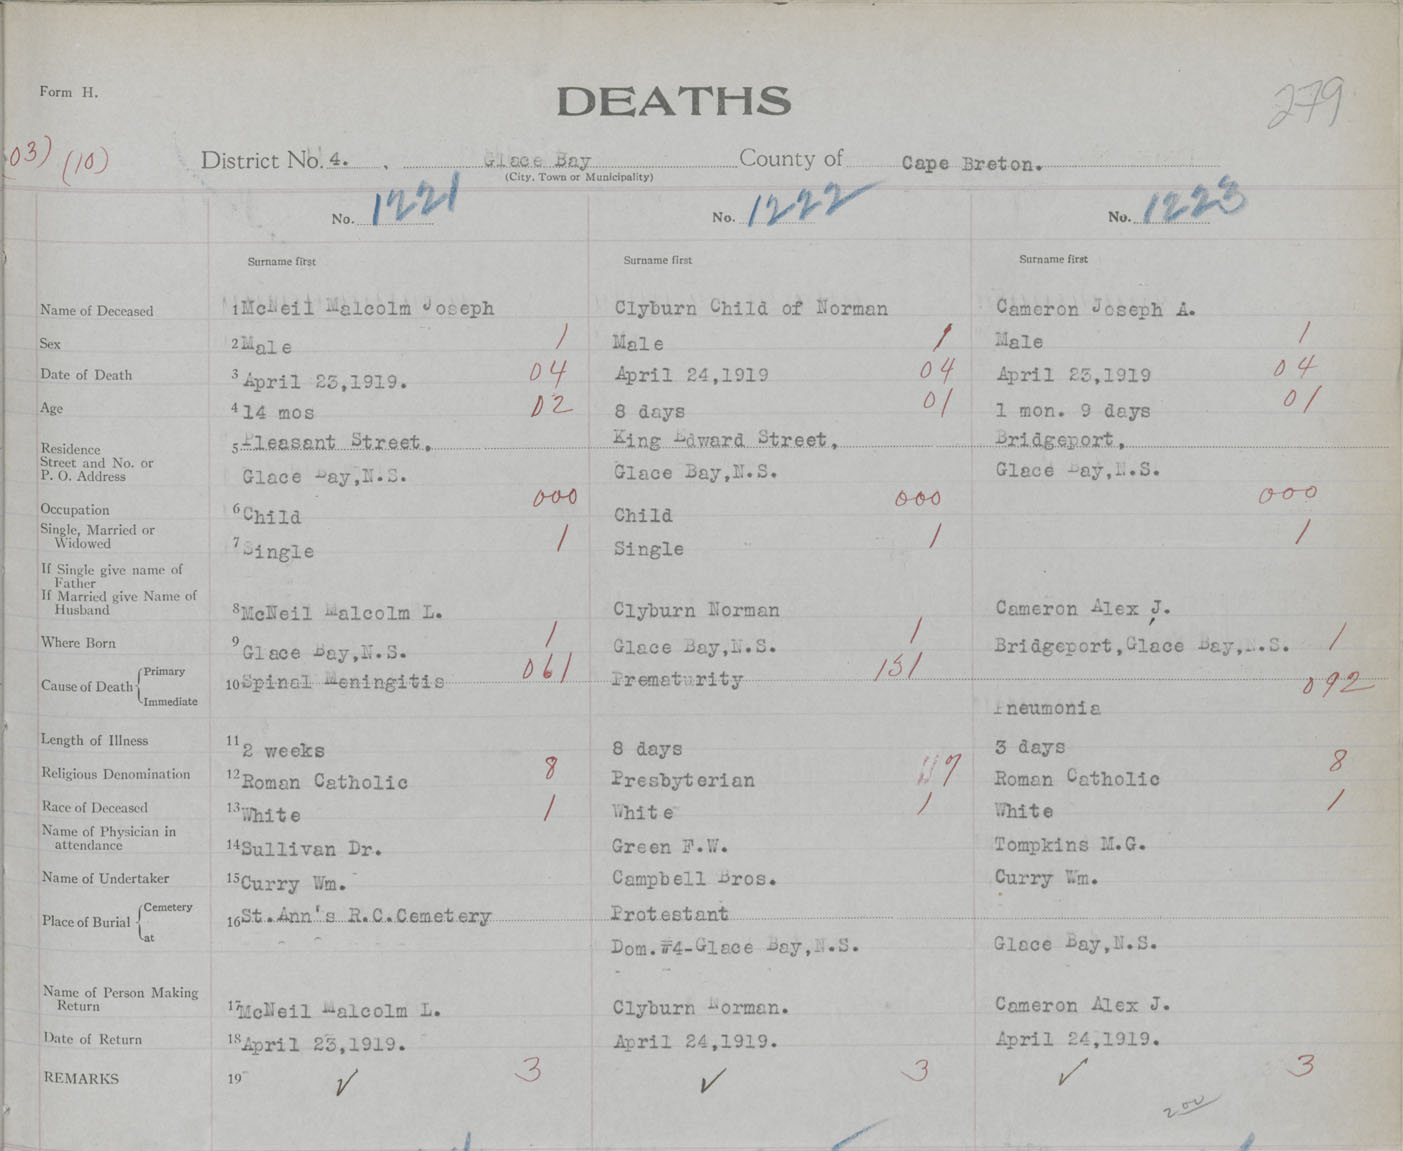 Form H.
DEATHS
279
03) (10)
District No. 4. Glace Bay County of Cape Breton.
(City, Town or Municipality)
No. 1221 No. 1222 No. 1223
Surname first Surname first Surname first
Name of Deceased 1 McNeil Malcolm Joseph Clyburn Child of Norman Cameron Joseph A.
Sex 2 Male 1 Male 1 Male 1
Date of Death 3 April 23,1919. 04 April 24,1919 04 April 23,1919 04
Age 4 14 mos 02 8 days 01 1 mon. 9 days 01
Residence 5 Pleasant Street, King Edward Street, Bridgeport,
Street and No. or
P. O. Address Glace Bay,N.S. Glace Bay,N.S. Glace Bay,N.S.
Occupation 6 Child 000 Child 000 000
Single, Married or
Widowed 7 Single 1 Single 1 1
If Single give name of
Father
If Married give Name of
Husband 8 McNeil Malcolm L. Clyburn Norman Cameron Alex J.
Where Born 9 Glace Bay,N.S. 1 Glace Bay,N.S. 1 Bridgeport,Glace Bay,N.S. 1
Cause of Death Primary 10 Spinal Meningitis 061 Prematurity 151 092
Immediate Pneumonia
Length of Illness 11 2 weeks 8 days 3 days
Religious Denomination 12 Roman Catholic 8 Presbyterian 7 Roman Catholic 8
Race of Deceased 13 White 1 White 1 White 1
Name of Physician in
attendance 14 Sullivan Dr. Green F.W. Tompkins M.G.
Name of Undertaker 15 Curry Wm. Campbell Bros. Curry Wm.
Place of Burial Cemetery 16 St.Ann's R.C.Cemetery Protestant
at Dom.#4-Glace Bay,N.S. Glace Bay,N.S.
Name of Person Making
Return 17 McNeil Malcolm L. Clyburn Norman. Cameron Alex J.
Date of Return 18 April 23,1919. April 24,1919. April 24,1919.
REMARKS 19 ✓ 3 ✓ 3 ✓ 3
200